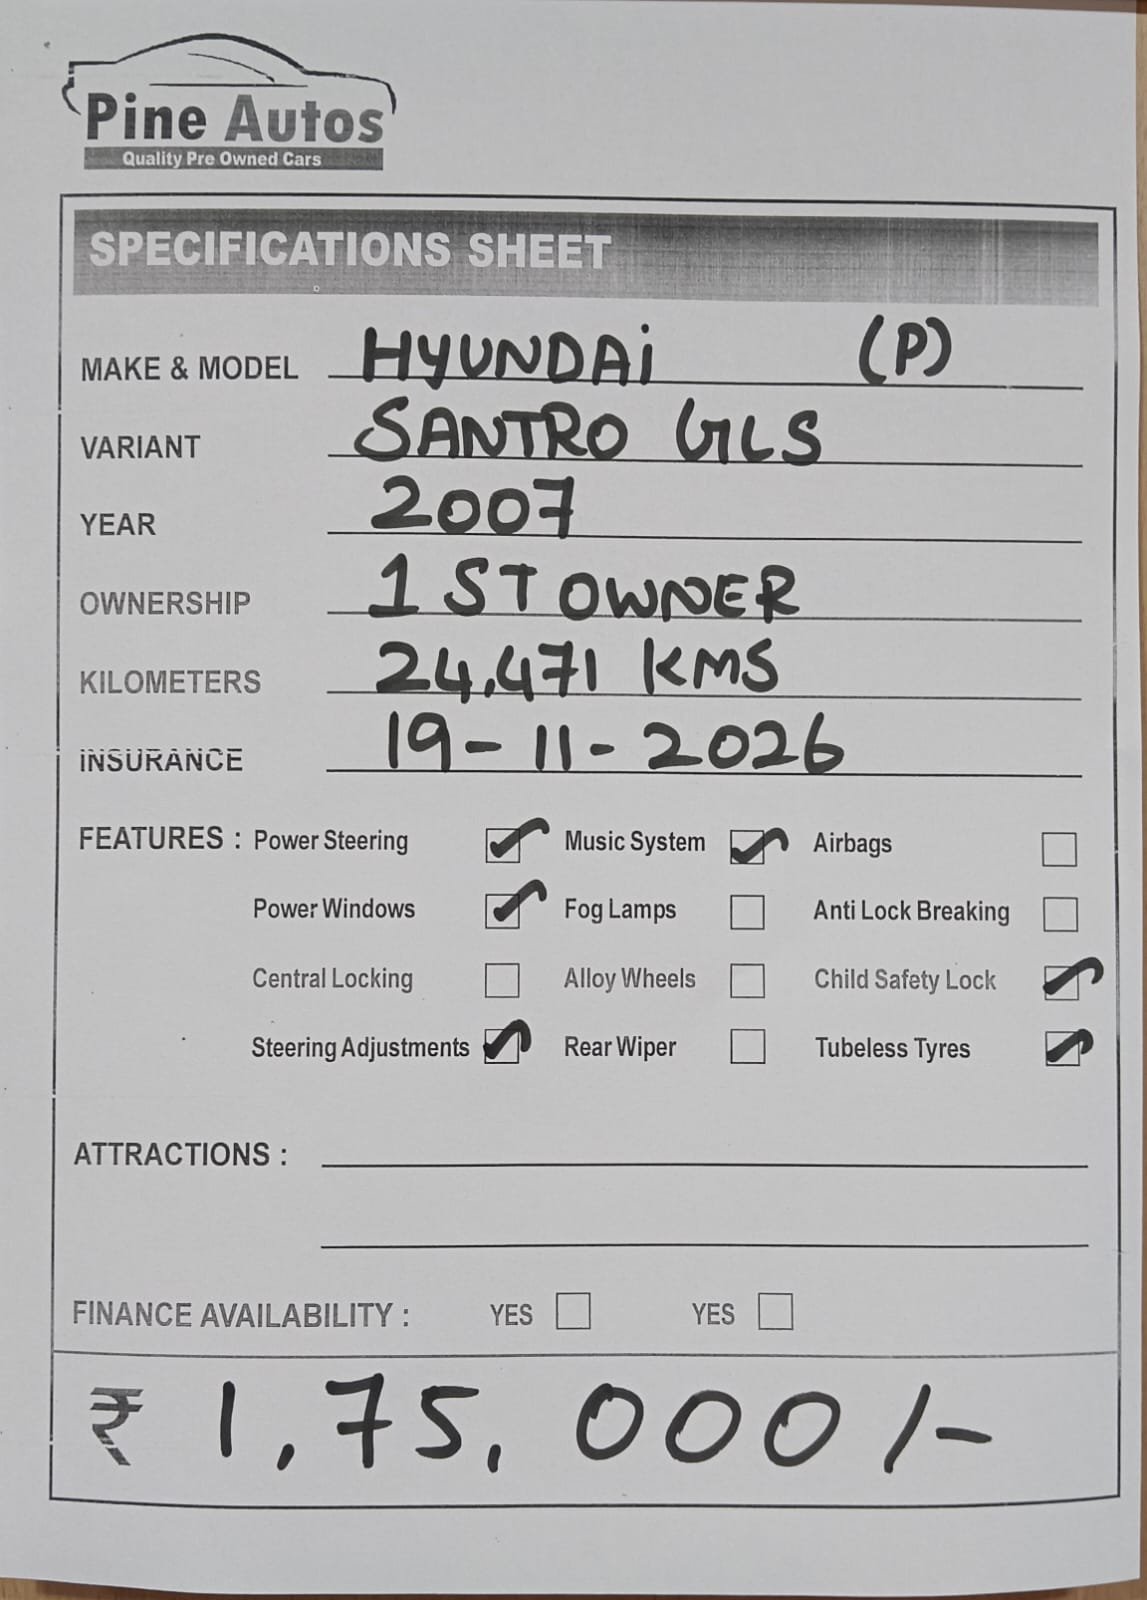 Pine Autos
Quality Pre Owned Cars
SPECIFICATIONS SHEET
MAKE & MODEL HYUNDAi (P)
VARIANT SANTRO GLS
YEAR 2007
OWNERSHIP 1 ST OWNER
KILOMETERS 24,471 KMS
INSURANCE 19-11-2026
FEATURES : Power Steering Music System Airbags
Power Windows Fog Lamps Anti Lock Breaking
Central Locking Alloy Wheels Child Safety Lock
Steering Adjustments Rear Wiper Tubeless Tyres
ATTRACTIONS :
FINANCE AVAILABILITY : YES YES
₹ 1,75,000/-